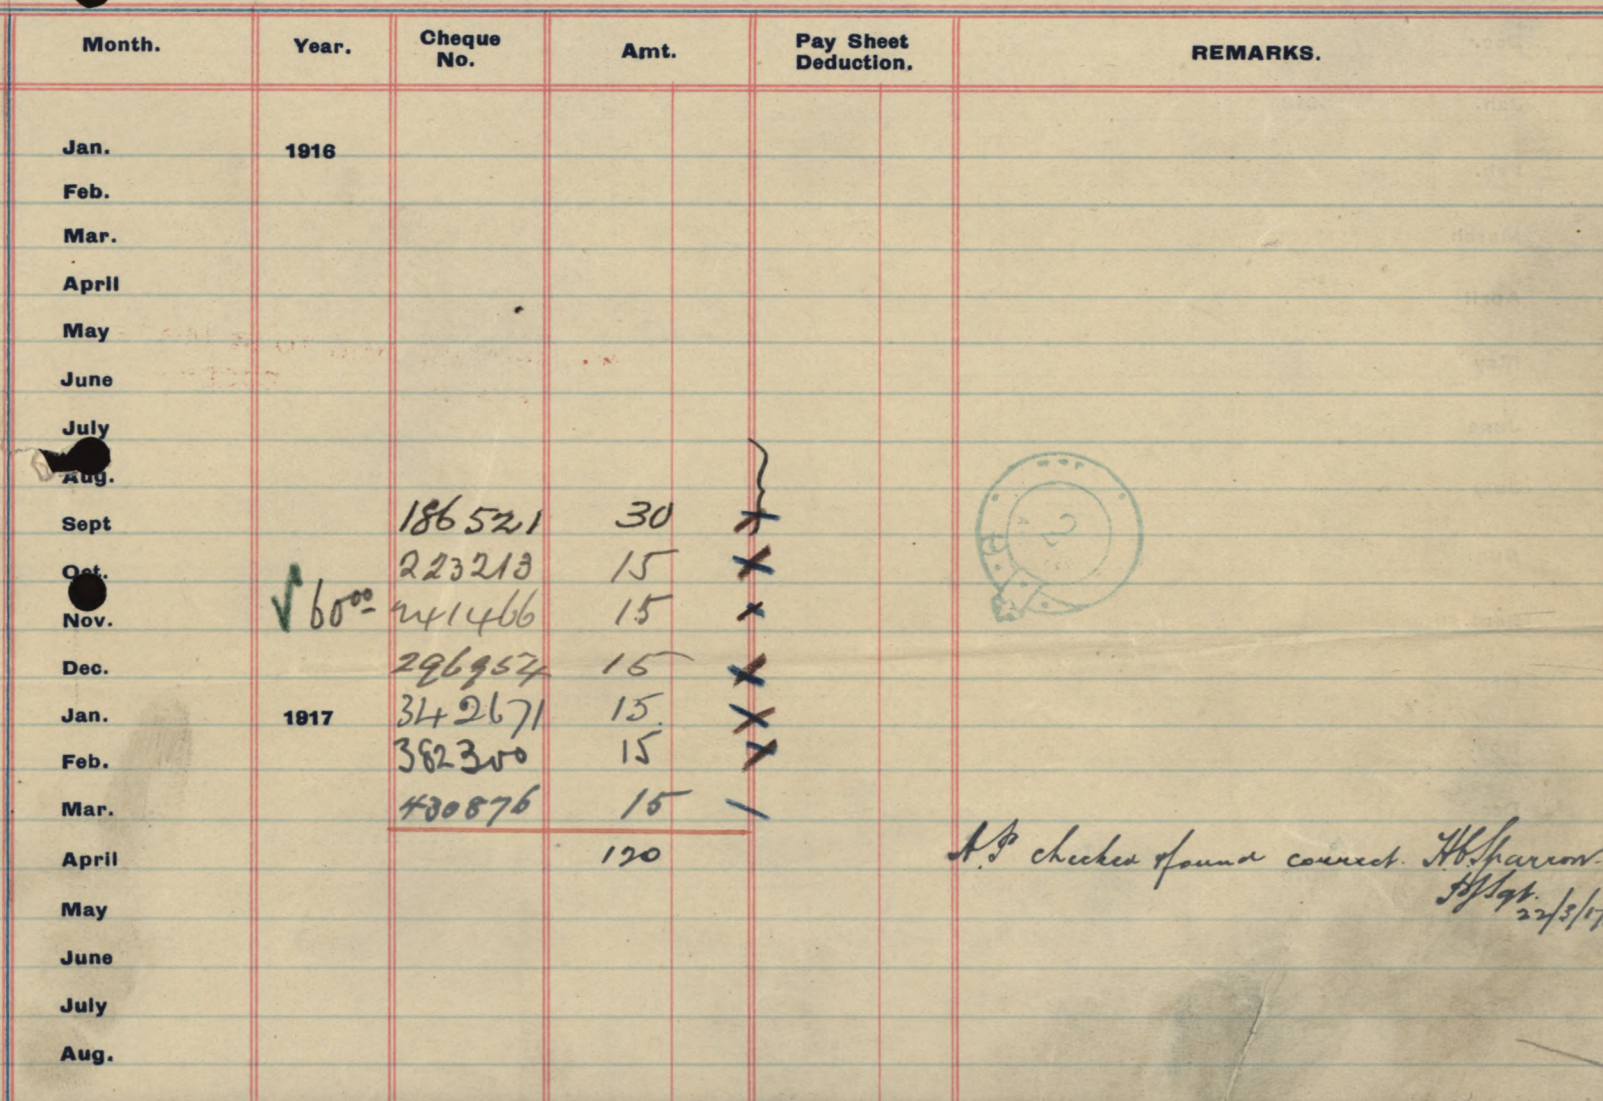 Month. Year. Cheque No. Amt. Pay Sheet Deduction. REMARKS.
Jan. 1916
Feb.
Mar.
April
May
June
July
Aug.
Sept 186521 30
Oct. 223213 15
Nov. 60 00 241466 15
Dec. 296954 15
Jan. 1917 342671 15
Feb. 382300 15
Mar. 430876 15
April 120 A.P checked & found correct. H.C. Sparrow.
May Sgt. 22/3/17
June
July
Aug.